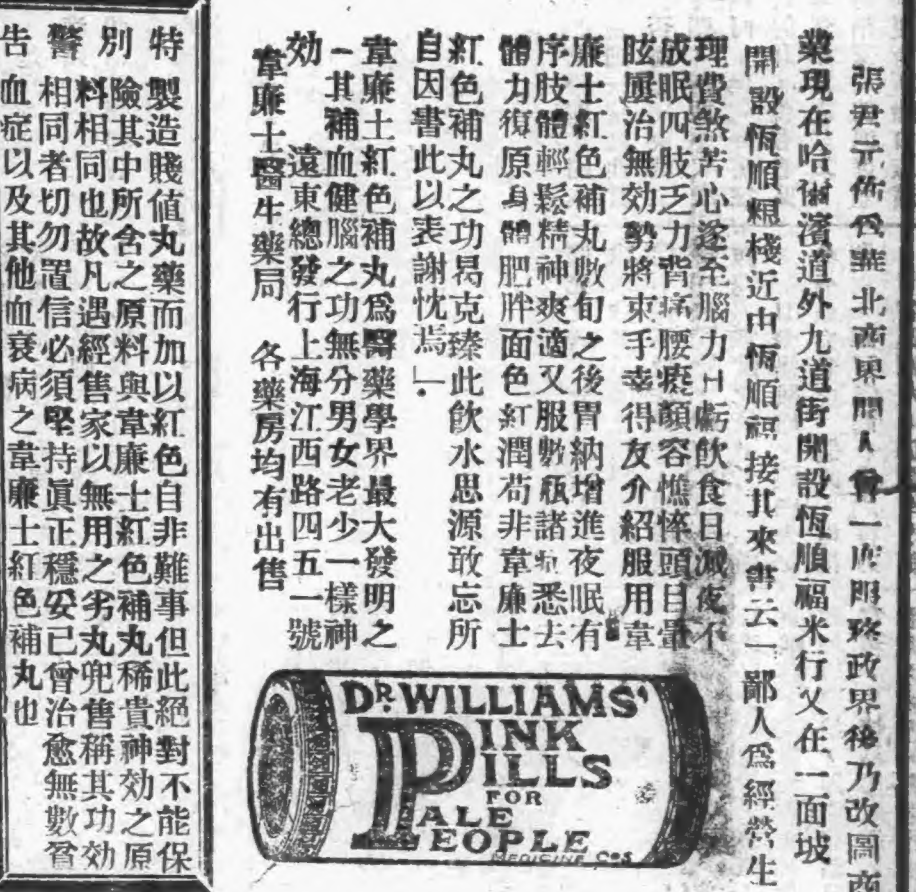 張君元佑爲華北商界聞人曾一度服務政界後乃改圖商
業現在哈爾濱道外九道街開設恆順福米行又在一面坡
開設恆順糧棧近由恆順福接其來書云「鄙人爲經營生
理費煞苦心遂至腦力日虧飲食日減夜不
成眠四肢乏力背痛腰痠顏容憔悴頭目暈
眩屢治無効勢將束手幸得友介紹服用韋
廉士紅色補丸數旬之後胃納增進夜眠有
序肢體輕鬆精神爽適又服數瓶諸恙悉去
體力復原身體肥胖面色紅潤苟非韋廉士
紅色補丸之功曷克臻此飲水思源敢忘所
自因書此以表謝忱焉」.
韋廉士紅色補丸爲醫藥學界最大發明之
一其補血健腦之功無分男女老少一樣神
効 遠東總發行上海江西路四五一號
韋廉士醫生藥局 各藥房均有出售
DR. WILLIAMS'
PINK
PILLS
FOR
PALE
PEOPLE
MEDICINE Co's
特別警告
製造賤值丸藥而加以紅色自非難事但此絕對不能保
險其中所含之原料與韋廉士紅色補丸稀貴神効之原
料相同也故凡遇經售家以無用之劣丸兜售稱其功効
相同者切勿置信必須堅持眞正穩妥已曾治愈無數貧
血症以及其他血衰病之韋廉士紅色補丸也